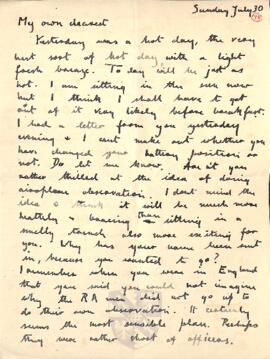 Sunday July 30
My own dearest
Yesterday was a hot day, the very
best sort of hot day with a light
fresh breeze. To day will be just as
hot. I am sitting in the sun now
but I think I shall have to get
out of it very likely before breakfast.
I had a letter from you yesterday
evening & I cant make out whether you
have changed your battery position or
not. Do let me know. Aren't you
rather thrilled at the idea of doing
aeroplane observation. I dont mind the
idea & think it will be much more
healthy & bracing than sitting in a
smelly trench also more exciting for
you. Why has your name been put
in, because you wanted to go?
I remember when you were in England
that you said you could not imagine
why the RA men did not go up to
do their own observation. It certainly
seems the most sensible plan. Perhaps
they were rather short of officers.